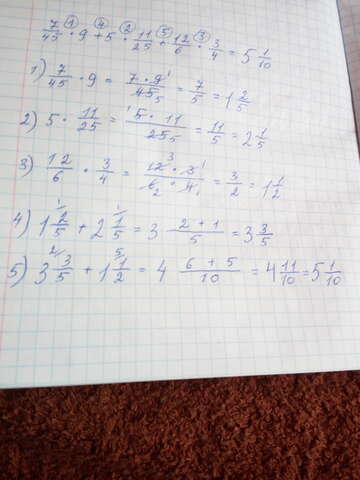 7/45 ① · 9 ④ + 5 ② · 11/25 ⑤ + 12/6 ③ · 3/4 = 5 1/10
1) 7/45 · 9 = 7 · 9¹/45₅ = 7/5 = 1 2/5
2) 5 · 11/25 = ¹5 · 11/25₅ = 11/5 = 2 1/5
3) 12/6 · 3/4 = 12³ · 3¹/6₂ · 4₁ = 3/2 = 1 1/2
4) 1 ¹⁄2/5 + 2 ¹⁄1/5 = 3 2 + 1/5 = 3 3/5
5) 3 ²⁄3/5 + 1 ⁵⁄1/2 = 4 6 + 5/10 = 4 11/10 = 5 1/10